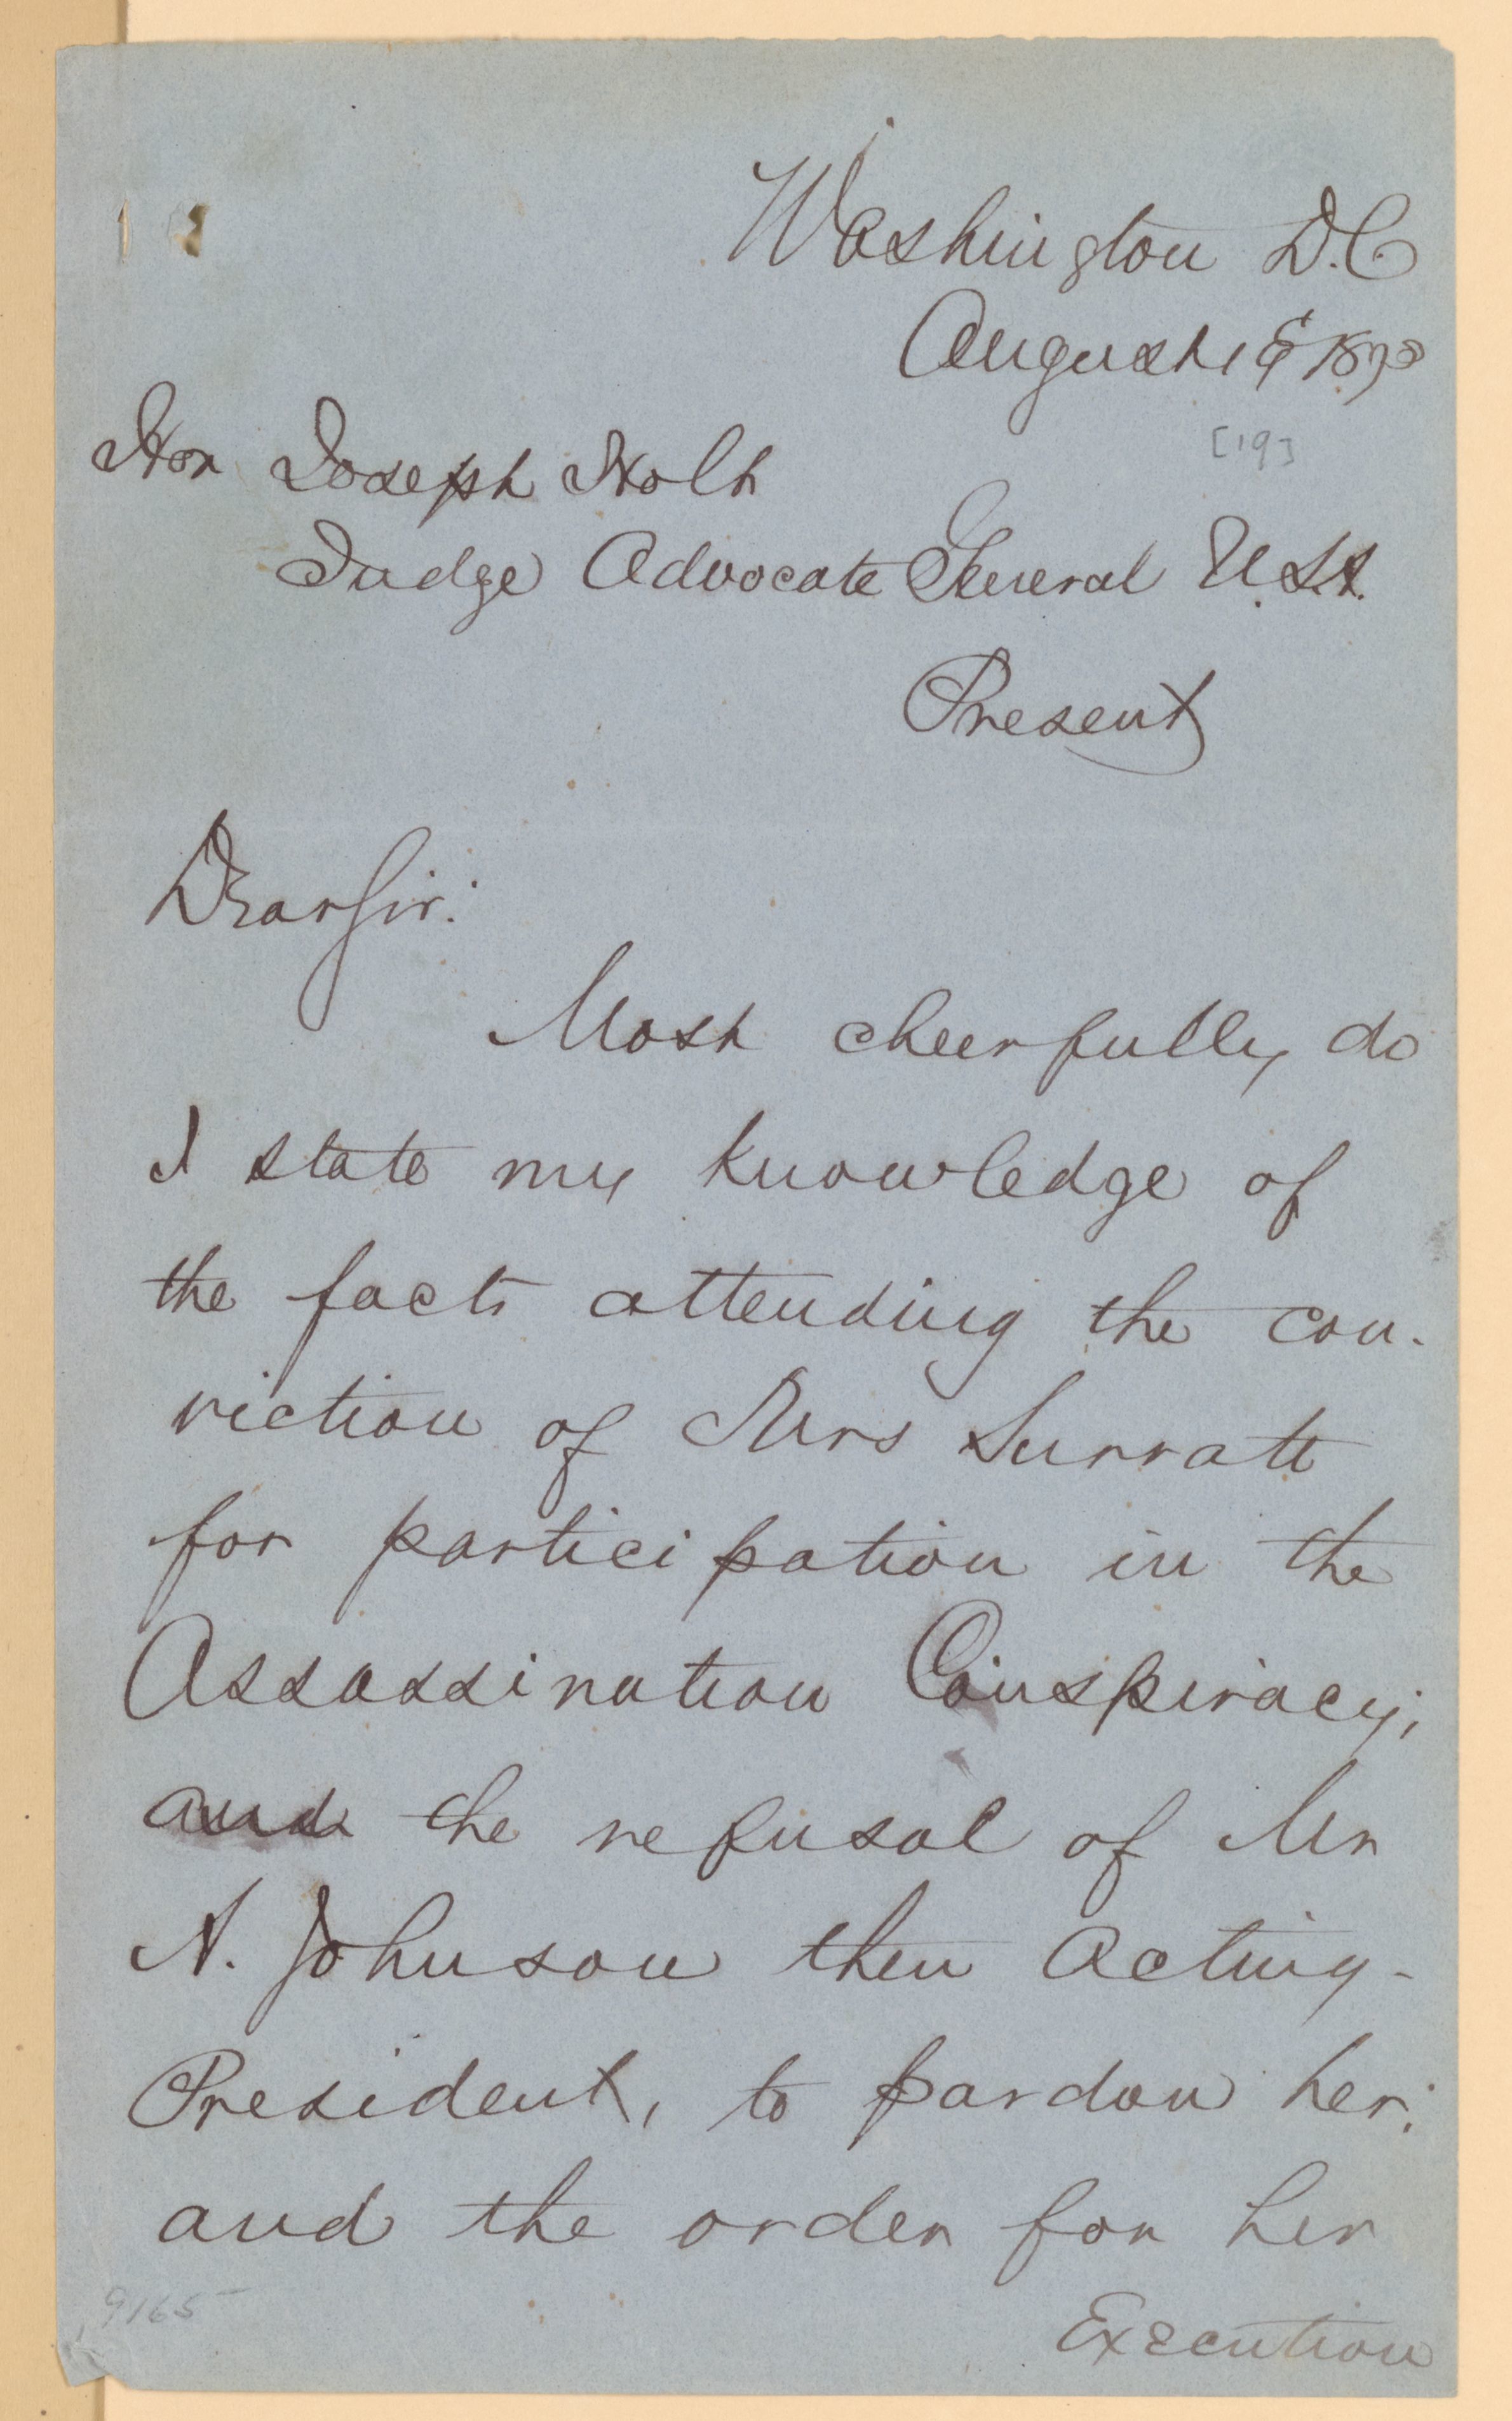 Washington D.C.
August 19 1873
[19]
Hon Joseph Holt
Judge Advocate General U.S.A.
Present
Dear Sir:
Most cheerfully do
I state my knowledge of
the facts attending the con-
viction of Mrs Surratt
for participation in the
Assassination Conspiracy;
and the refusal of Mr
A. Johnson then acting-
President, to pardon her;
and the order for her
Execution
9165